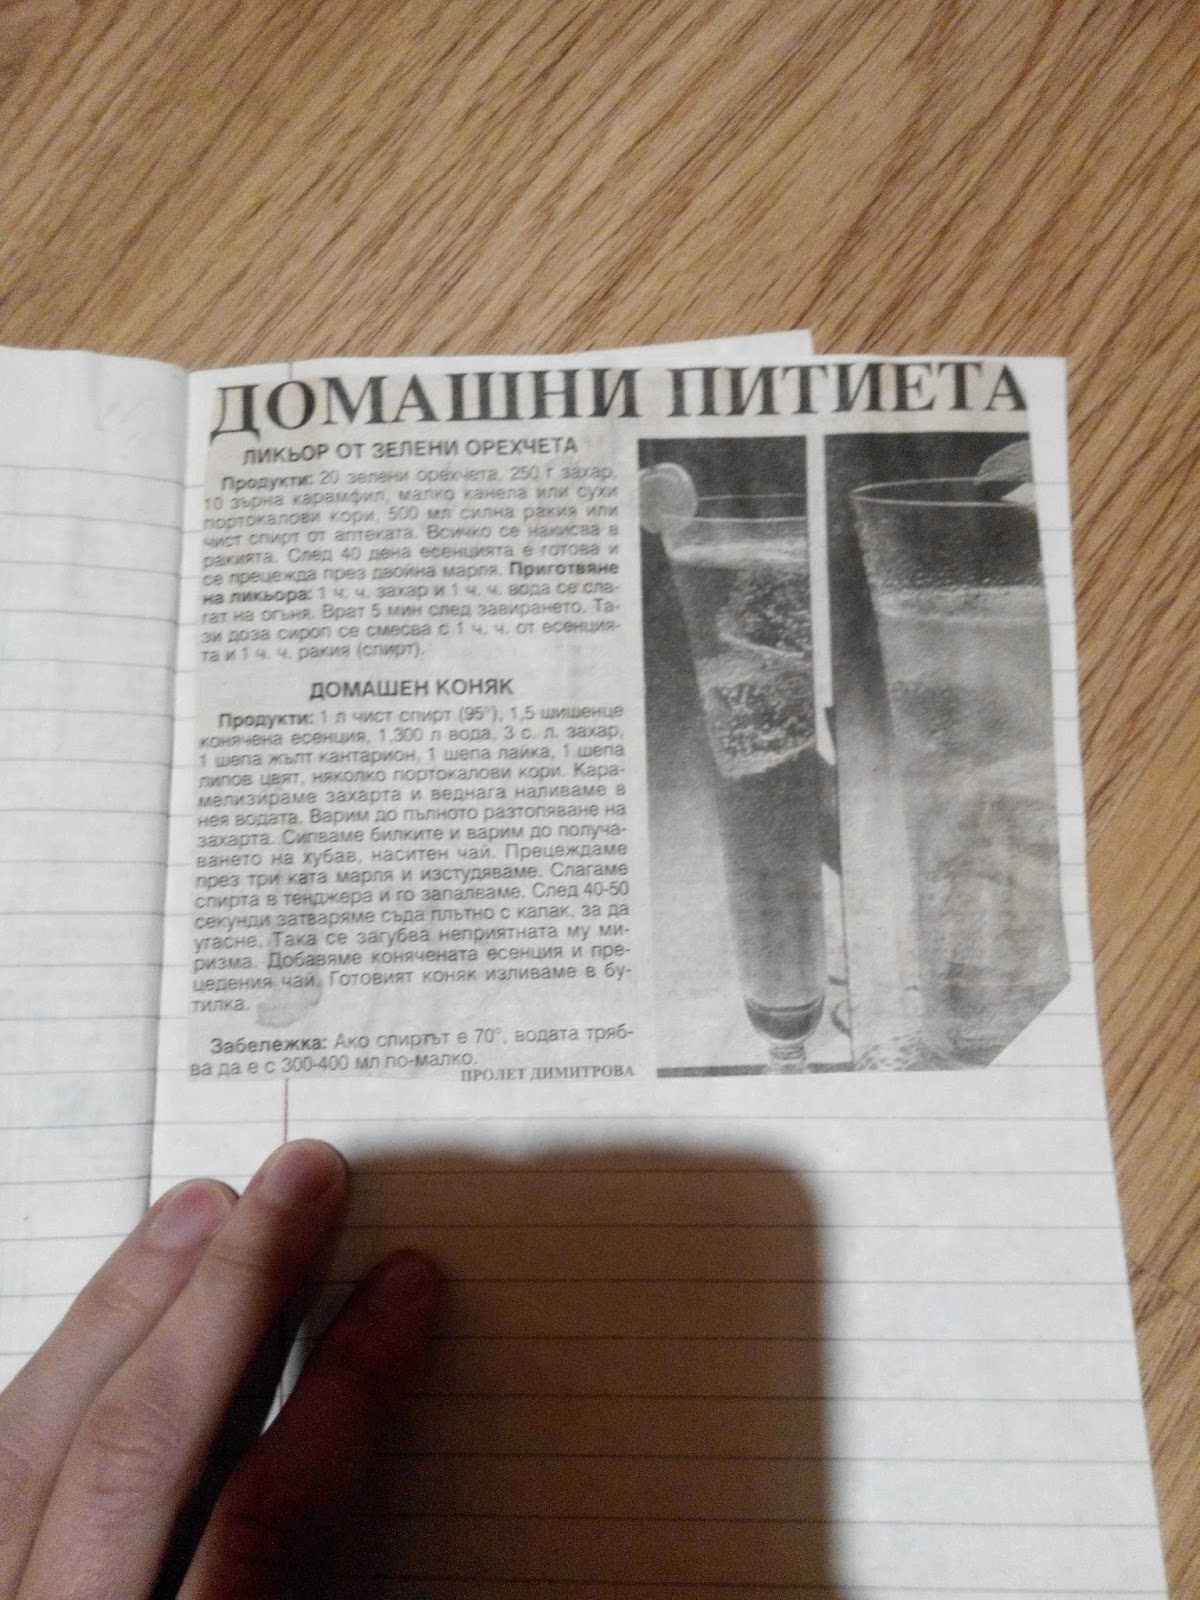 ДОМАШНИ ПИТИЕТА
ЛИКЬОР ОТ ЗЕЛЕНИ ОРЕХЧЕТА
Продукти: 20 зелени орехчета, 250 г захар,
10 зърна карамфил, малко канела или сухи
портокалови кори, 500 мл силна ракия или
чист спирт от аптеката. Всичко се накисва в
ракията. След 40 дена есенцията е готова и
се прецежда през двойна марля. Приготвяне
на ликьора: 1 ч. ч. захар и 1 ч. ч. вода се сла-
гат на огъня. Врат 5 мин след завирането. Та-
зи доза сироп се смесва с 1 ч. ч. от есенция-
та и 1 ч. ч. ракия (спирт).
ДОМАШЕН КОНЯК
Продукти: 1 л чист спирт (95°), 1,5 шишенце
конячена есенция, 1,300 л вода, 3 с. л. захар,
1 шепа жълт кантарион, 1 шепа лайка, 1 шепа
липов цвят, няколко портокалови кори. Кара-
мелизираме захарта и веднага наливаме в
нея водата. Варим до пълното разтопяване на
захарта. Сипваме билките и варим до получа-
ването на хубав, наситен чай. Прецеждаме
през три ката марля и изстудяваме. Слагаме
спирта в тенджера и го запалваме. След 40-50
секунди затваряме съда плътно с капак, за да
угасне. Така се загубва неприятната му ми-
ризма. Добавяме конячената есенция и пре-
цедения чай. Готовият коняк изливаме в бу-
тилка.
Забележка: Ако спиртът е 70°, водата тряб-
ва да е с 300-400 мл по-малко.
ПРОЛЕТ ДИМИТРОВА